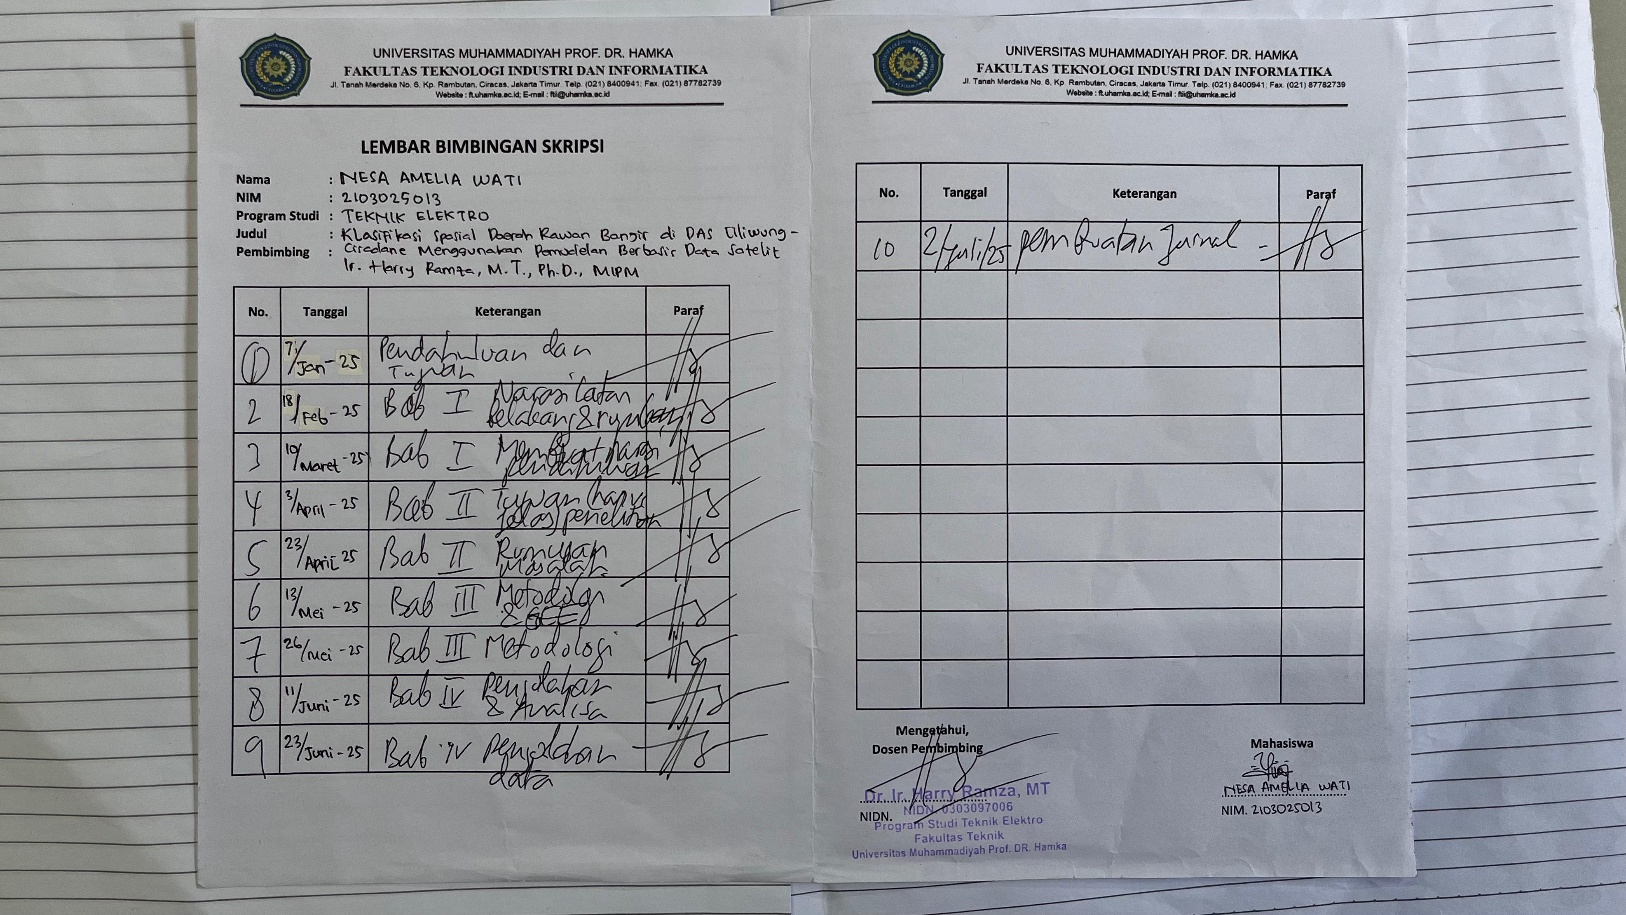 UNIVERSITAS MUHAMMADIYAH PROF. DR. HAMKA
FAKULTAS TEKNOLOGI INDUSTRI DAN INFORMATIKA
Jl. Tanah Merdeka No. 6, Kp. Rambutan, Ciracas, Jakarta Timur. Telp. (021) 8400941; Fax. (021) 87782739
Website : ft.uhamka.ac.id; E-mail : ftii@uhamka.ac.id
LEMBAR BIMBINGAN SKRIPSI
Nama : NESA AMELIA WATI
NIM : 2103025013
Program Studi : TEKNIK ELEKTRO
Judul : Klasifikasi Spasial Daerah Rawan Banjir di DAS Ciliwung-
Cisadane Menggunakan Pemodelan Berbasis Data Satelit
Pembimbing : Ir. Harry Ramza, M.T., Ph.D., MIPM
No. Tanggal Keterangan Paraf
1 7/Jan-25 Pendahuluan dan
Tujuan
2 18/Feb-25 Bab I Narasi latar
belakang &
3 10/Maret-25 Bab I
4 3/April-25 Bab II Tujuan
penelitian
5 23/April-25 Bab II Rumusan
Masalah
6 13/Mei-25 Bab III Metodologi
& GEE
7 26/Mei-25 Bab III Metodologi
8 11/Juni-25 Bab IV Pengolahan
& Analisa
9 23/Juni-25 Bab IV Pengolahan
data
UNIVERSITAS MUHAMMADIYAH PROF. DR. HAMKA
FAKULTAS TEKNOLOGI INDUSTRI DAN INFORMATIKA
Jl. Tanah Merdeka No. 6, Kp. Rambutan, Ciracas, Jakarta Timur. Telp. (021) 8400941; Fax. (021) 87782739
Website : ft.uhamka.ac.id; E-mail : ftii@uhamka.ac.id
No. Tanggal Keterangan Paraf
10 2/Juli/25 Pembuatan Jurnal
Mengetahui,
Dosen Pembimbing
Dr. Ir. Harry Ramza, MT
NIDN. NIDN. 0303097006
Program Studi Teknik Elektro
Fakultas Teknik
Universitas Muhammadiyah Prof. DR. Hamka
Mahasiswa
NESA AMELIA WATI
NIM. 2103025013